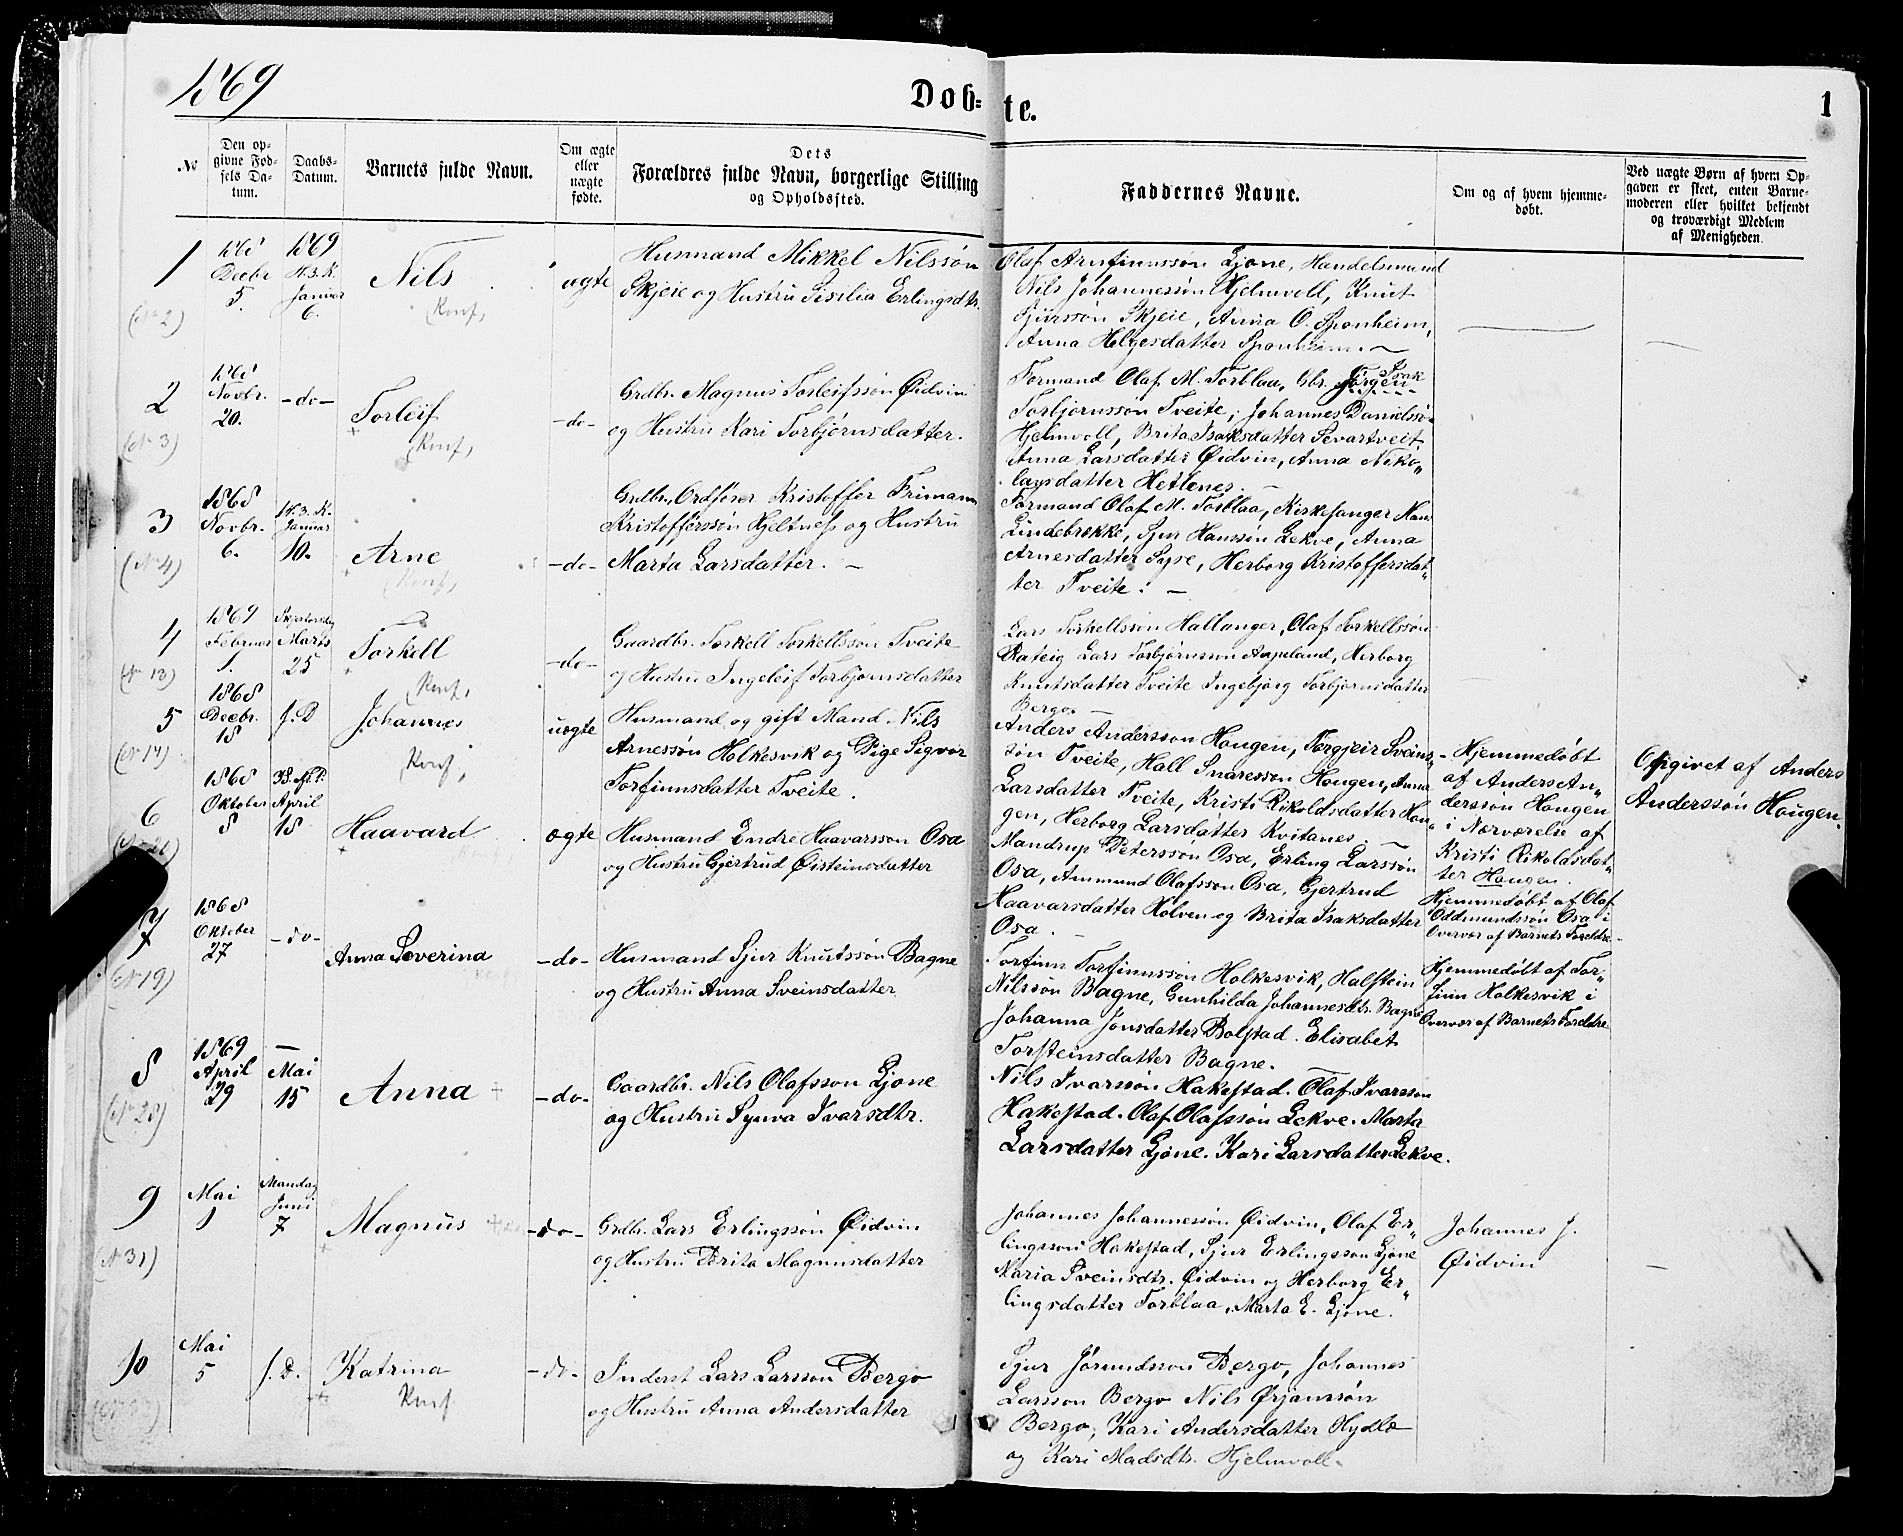 1869
Døb=
te.
1
№
Den op=
givne Fød=
sels Da=
tum.
Daabs=
Datum.
Barnets fulde Navn.
Om ægte
eller
uægte
fødte.
Dets
Forældres fulde Navn, borgerlige Stilling
og Opholdssted.
Faddernes Navne.
Om og af hvem hjemme=
døbt.
Ved uægte Børn af hvem Op=
gaven er skeet, enten Barne=
moderen eller hvilket bekjendt
og troværdigt Medlem
af Menigheden.
1
(№ 2)
1868
Decbr.
5.
1869
H.3.K.
Januar
6.
Nils
Konf,
ægte
Husmand Mikkel Nilssøn
Skjeie og Hustru Sisilia Erlingsdtr.
Olaf Arnfinnssøn Ljone, Handelsmand
Nils Johannessøn Hjelmvoll, Knut
Sjurssøn Skjeie, Anna O. Sponheim,
Anna Helgesdatter Sponheim.
2
(№ 3)
1868
Novbr.
20.
-do-
Torleif
Konf,
-do-
Grdbr. Magnus Torleifssøn Øidvin
og Hustru Kari Torbjørnsdatter.
Isak
Formand Olaf M. Torblaa, Gbr. Jørgen
Torbjørnssøn Tveite, Johannes Danielssø-
Hjelmvoll, Brita Isaksdatter Sevartveit
Anna Larsdatter Øidvin, Anna Niko„
laysdatter Hetlenes.
3
(№ 4)
1868
Novbr.
6.
H.3.K.
Januar
10.
Arne
Konf,
-do-
Grdbr, Ordfører Kristoffer Frimann
Kristofferssøn Hjeltnes og Hustru
Marta Larsdatter.
Formand Olaf M. Torblaa, Kirkesanger Han
Lindebrekke, Sjur Hanssøn Lekve, Anna
Arnesdatter Syse, Herborg Kristoffersdat„
ter Tveite.
4
(№ 13)
1869
Februar
1.
Skjærtorsdag
Marts
25
Torkell
Konf,
-do-
Gaardbr. Torkell Torkellssøn Tveite
og Hustru Ingeleif Torbjørnsdatter
Lars Torkellssøn Hallanger, Olaf Torkellssøn
Rateig Lars Torbjørnssøn Aapeland, Herborg
Knutsdatter Tveite Ingebjørg Torbjørnsdatter
Bergo.
5
(№ 14)
1868
Decbr.
18
f. D
Johannes
Konf,
uægte
Husmand og gift Mand Nils
Arnessøn Holkesvik og Pige Sigvor
Torfinnsdatter Tveite.
Anders Anderssøn Hougen, Torgjeir Sveins„
søn Tveite, Hall Snaressøn Hougen, Anna
Larsdatter Tveite, Kristi Rikoldsdatter Hou„
gen, Herborg Larsdatter Kvitanes
Hjemmedøbt
af Anders An„
derssøn Hougen
i Nærværelse af
Kristi Rikoldsdat„
ter Hougen.
Opgivet af Anders
Anderssøn Hougen.
6
1868
Oktober
8
April
18
Haavard
ægte
Husmand Endre Haavarssøn Osa
og Hustru Gjertrud Øisteinsdatter
Mandrup Peterssøn Osa, Erling Larssøn
Osa, Ammund Olafssøn Osa, Gjertrud
Haavarsdatter Holven og Brita Isaksdatter
Osa.
Hjemmedøbt af Olaf
Oddmundssøn Osa i
Overvær af Barnets Forældre
7
(№ 19)
1868
Oktober
27
-do-
Anna Severina
-do-
Husmand Sjur Knutssøn Bagne
og Hustru Anna Sveinsdatter
Torfinn Torfinnssøn Holkesvik, Halstein
Nilssøn Bagne, Gunhilda Johannesdtr. Bagne
Johanna Jonsdatter Bolstad. Elisabet
Torsteinsdatter Bagne.
Hjemmedøbt af Tor„
finn Holkesvik i
Overvær af Barnets Forældre
8
(№ 28)
1869
April
29
Mai
15
Anna
-do-
Gaardbr. Nils Olafssøn Ljone
og Hustru Synva Ivarsdtr.
Nils Ivarssøn Hakestad. Olaf Ivarssøn
Hakestad. Olaf Olafssøn Lekve. Marta
Larsdatter Ljone. Kari Larsdatter Lekve.
9
(№ 31)
Mai
1
Mandag
Juni
7
Magnus
-do-
Grdbr. Lars Erlingssøn Øidvin
og Hustru Brita Magnusdatter
Johannes Johannessøn Øidvin, Olaf Er„
lingssøn Hakestad, Sjur Erlingssøn Ljone
Maria Sveinsdtr. Øidvin og Herborg Er„
lingsdatter Torblaa, Marta E. Ljone.
Johannes J.
Øidvin
10
Mai
5
f. D.
Katrina
Konf
-do-
Inderst Lars Larssøn Bergo
og Hustru Anna Andersdatter
Sjur Jørundssøn Bergo, Johannes
Larssøn Bergo Nils Ørjanssøn
Bergo, Kari Andersdatter Hydle
og Kari Madsdtr. Hjelmvoll.